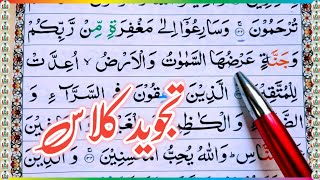 تُرْحَمُوْنَ ۝ وَسَارِعُوْٓا اِلٰى مَغْفِرَةٍ مِّنْ رَّبِّكُمْ
وَجَنَّةٍ عَرْضُهَا السَّمٰوٰتُ وَالْاَرْضُ ۙ اُعِدَّتْ
لِلْمُتَّقِيْنَ الَّذِيْنَ يُنْفِقُوْنَ فِي السَّرَّآءِ وَ
تجوید کلاس
وَاللّٰهُ يُحِبُّ الْمُحْسِنِيْنَ ۝ وَالَّذِيْنَ